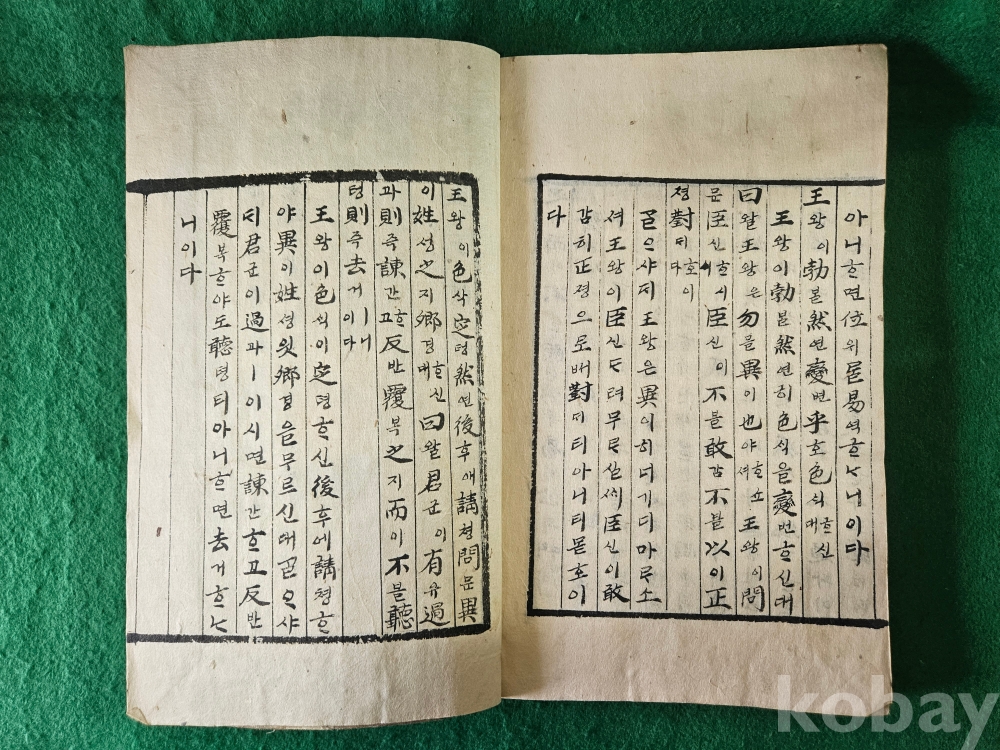 아니ᄒᆞ면位위ᄅᆞᆯ易역ᄒᆞᄂᆞ니이다
王왕이勃볼然연變변乎호色ᄉᆡᆨᄒᆞ신대
王왕이勃볼然연히色ᄉᆡᆨ을變변ᄒᆞ신대
曰왈王왕은勿믈異이也야ᄒᆞ쇼셔王왕이問
문臣신ᄒᆞ시ᄉᆡ臣신이不블敢감不블以이正
졍對ᄃᆡ호이다
ᄀᆞᆯᄋᆞ샤ᄃᆡ王왕은異이히너기디마ᄅᆞ쇼
셔王왕이臣신ᄃᆞ려무ᄅᆞ실ᄉᆡ臣신이敢
감히正졍으로ᄡᅥ對ᄃᆡ티아니티몯호이
다
王왕이色ᄉᆡᆨ定뎡然연後후에請쳥問문異
이姓셩之지卿경ᄒᆞ신대曰왈君군이有유過
과則즉諫간ᄒᆞ고反반覆복之지而이不블聽
텽則즉去거ㅣ니이다
王왕이色ᄉᆡᆨ이定뎡ᄒᆞ신後후에請쳥ᄒᆞ
야異이姓셩읫卿경을무르신대ᄀᆞᆯᄋᆞ샤
ᄃᆡ君군이過과ㅣ이시면諫간ᄒᆞ고反반
覆복ᄒᆞ야도聽텽티아니ᄒᆞ면去거ᄒᆞᄂᆞ
니이다
kobay